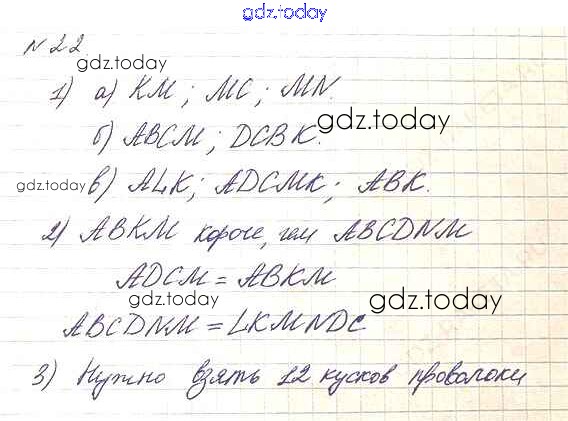 gdz.today
№ 22
gdz.today
1) а) KM; MC; MN.
gdz.today
б) ABCM; DCBK.
gdz.today
в) ALK; ADCMK; ABK.
2) ABKM короче, чем ABCDNM
ADCM = ABKM
gdz.today gdz.today
ABCDNM = LKMNDC
3) Нужно взять 12 кусков проволоки